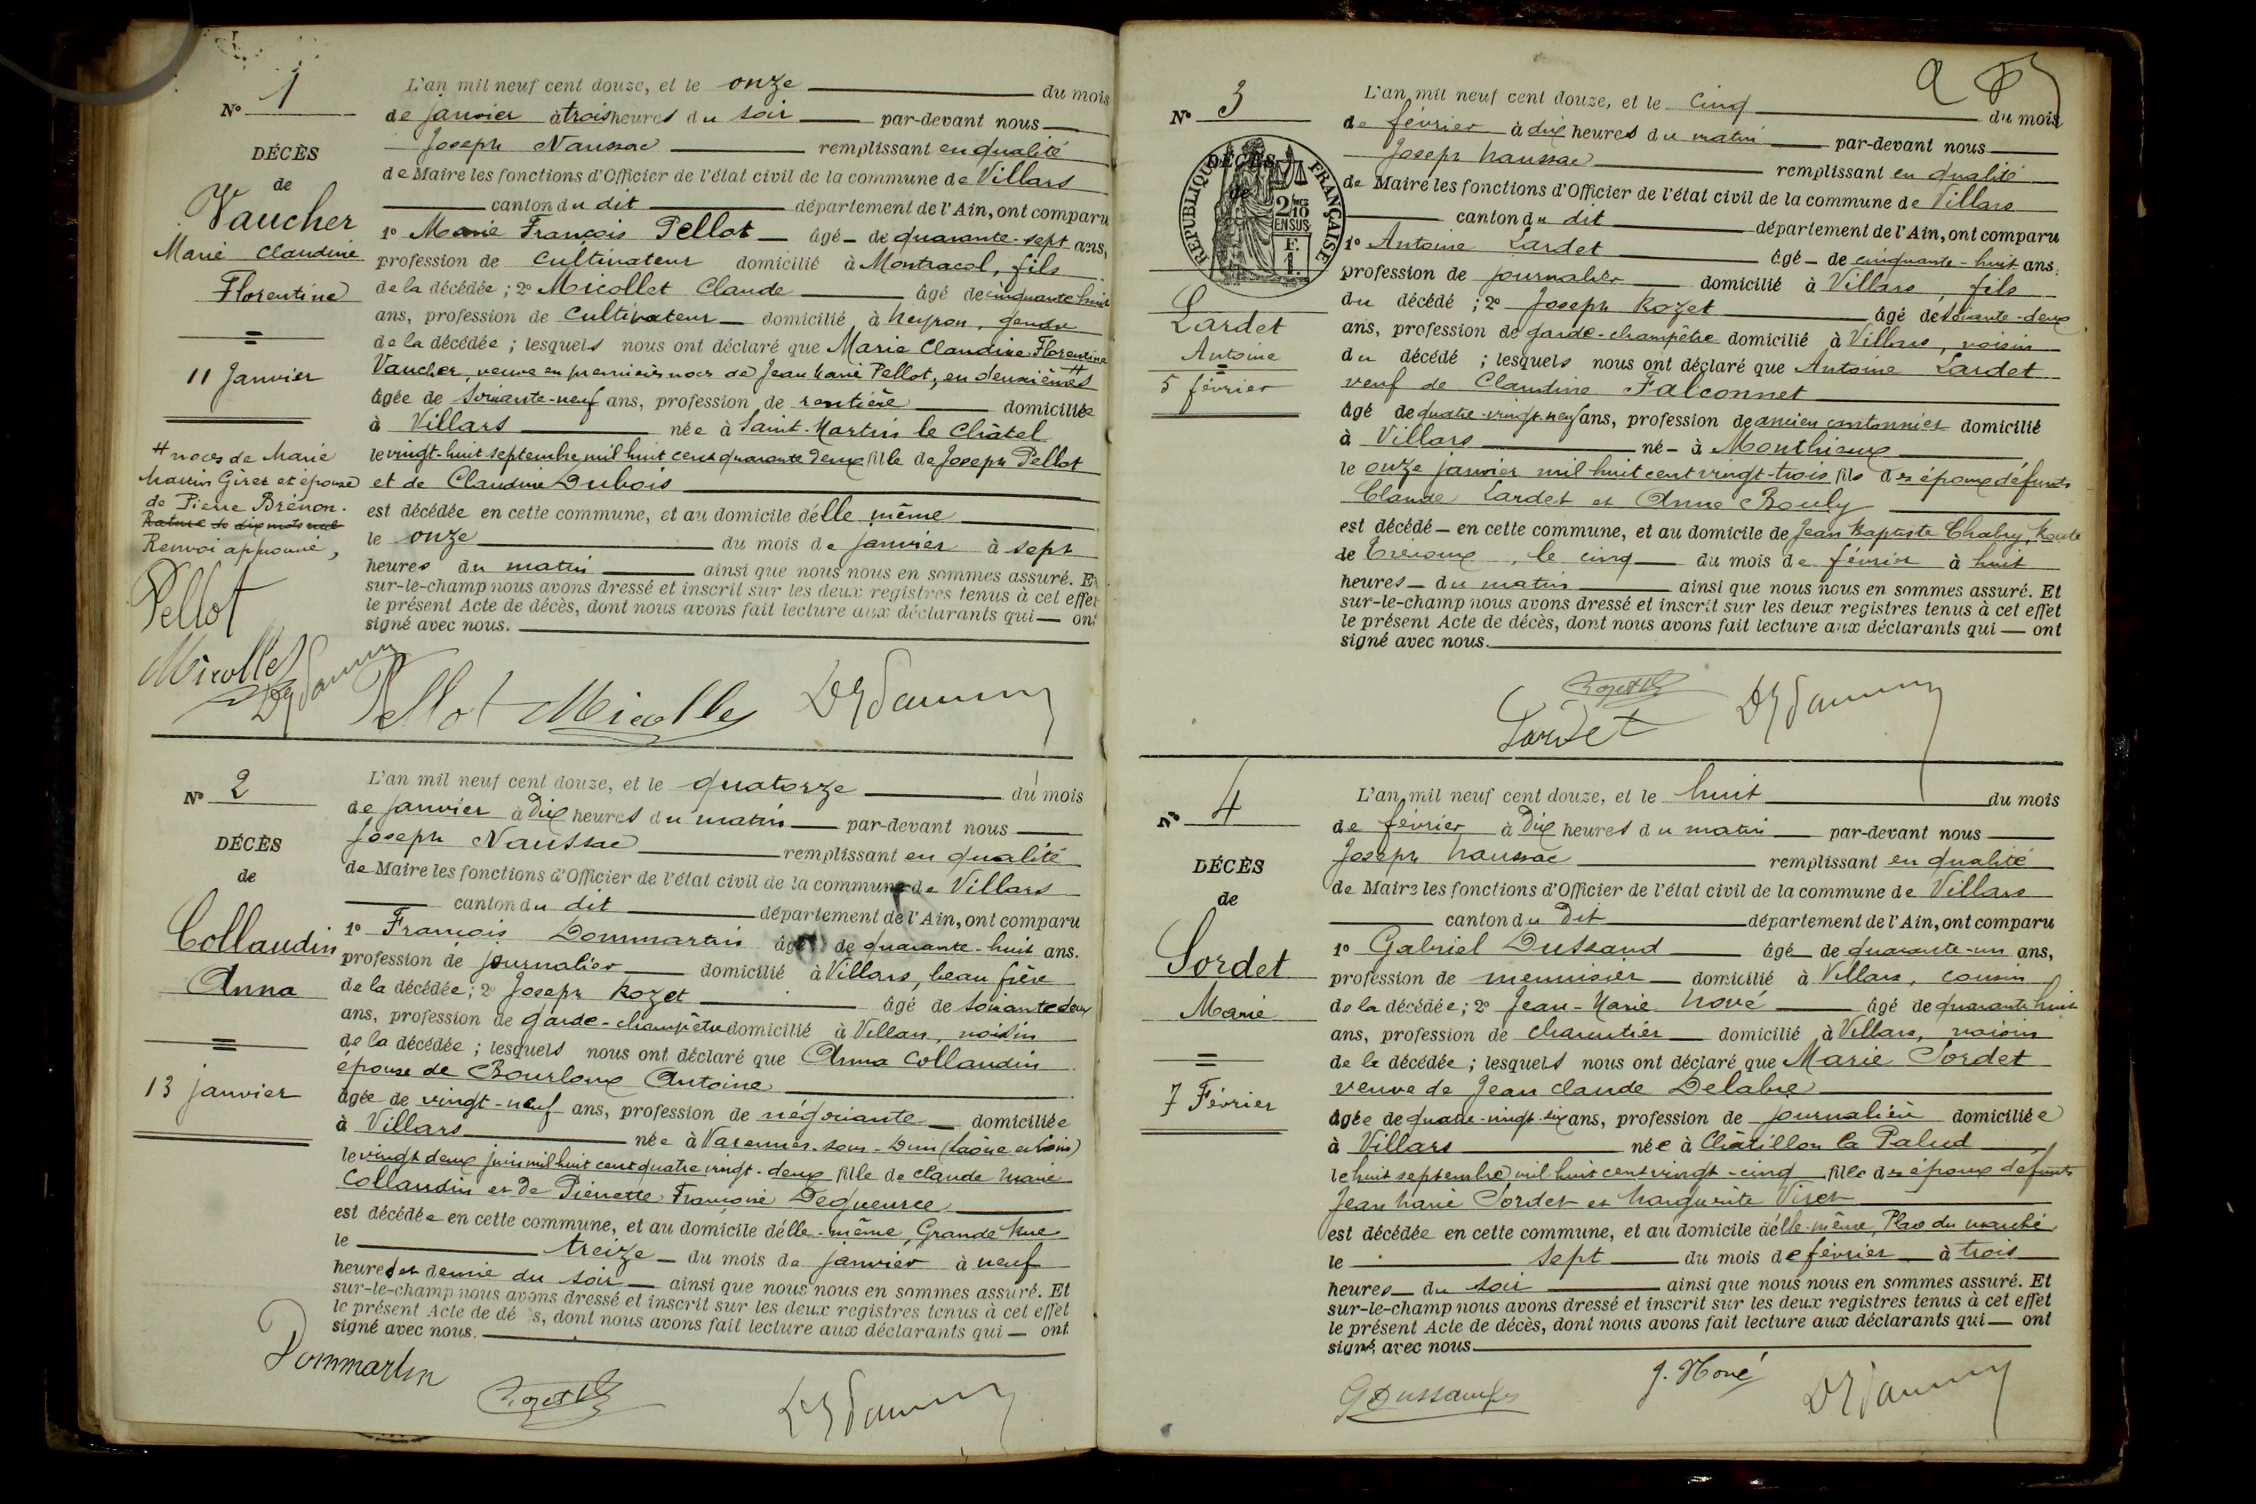 N° 1
DÉCÈS
de
Vaucher
Marie Claudine
Florentine
11 Janvier
# noces de Marie
Martin Giret et épouse
de Pierre Brénon.
Rature de dix mots nuls
Renvoi approuvé,
Pellot
Micollet
L'an mil neuf cent douze, et le onze du mois
de janvier à trois heures du soir par-devant nous
Joseph Naussac remplissant en qualité
de Maire les fonctions d'Officier de l'état civil de la commune de Villars
canton du dit département de l'Ain, ont comparu
1° Marie François Pellot âgé de quarante-sept ans,
profession de cultivateur domicilié à Montracol, fils
de la décédée ; 2° Micollet Claude âgé de cinquante huit
ans, profession de cultivateur domicilié à Neyron, gendre
de la décédée ; lesquels nous ont déclaré que Marie Claudine Florentine
Vaucher, veuve en premières noces de Jean Marie Pellot, en deuxièmes #
âgée de soixante-neuf ans, profession de rentière domiciliée
à Villars née à Saint-Martin le Châtel
le vingt-huit septembre mil huit cent quarante deux fille de Joseph Pellot
et de Claudine Dubois
est décédée en cette commune, et au domicile d'elle même
le onze du mois de janvier à sept
heures du matin ainsi que nous nous en sommes assuré. Et
sur-le-champ nous avons dressé et inscrit sur les deux registres tenus à cet effet
le présent Acte de décès, dont nous avons fait lecture aux déclarants qui ont
signé avec nous.
Pellot Micollet
N° 2
DÉCÈS
de
Collaudin
Anna
13 janvier
L'an mil neuf cent douze, et le quatorze du mois
de janvier à Dix heures du matin par-devant nous
Joseph Naussac remplissant en qualité
de Maire les fonctions d'Officier de l'état civil de la commune de Villars
canton du dit département de l'Ain, ont comparu
1° François Dommartin âgé de quarante-huit ans.
profession de journalier domicilié à Villars, beau frère
de la décédée ; 2° Joseph Rozet âgé de soixante deux
ans, profession de garde-champêtre domicilié à Villars, voisin
de la décédée ; lesquels nous ont déclaré que Anna Collaudin
épouse de Bourloux Antoine
âgée de vingt-neuf ans, profession de négociante domiciliée
à Villars née à Varennes-sous-Dun (Saône et Loire)
le vingt deux juin mil huit cent quatre vingt-deux fille de Claude Marie
Collaudin et de Pierrette Françoise Dequeurce
est décédée en cette commune, et au domicile d'elle-même, Grande Rue
le treize du mois de janvier à neuf
heures et demie du soir ainsi que nous nous en sommes assuré. Et
sur-le-champ nous avons dressé et inscrit sur les deux registres tenus à cet effet
le présent Acte de dé s, dont nous avons fait lecture aux déclarants qui ont
signé avec nous.
Dommartin
Rozet
N° 3
DÉCÈS
de
RÉPUBLIQUE FRANÇAISE
2/10
EN SUS
F.
1.
Lardet
Antoine
5 février
L'an mil neuf cent douze, et le cinq du mois
de février à dix heures du matin par-devant nous
Joseph Naussac remplissant en qualité
de Maire les fonctions d'Officier de l'état civil de la commune de Villars
canton du dit département de l'Ain, ont comparu
1° Antoine Lardet âgé de cinquante-huit ans,
profession de journalier domicilié à Villars, fils
du décédé ; 2° Joseph Rozet âgé de soixante-deux
ans, profession de garde-champêtre domicilié à Villars, voisin
du décédé ; lesquels nous ont déclaré que Antoine Lardet
veuf de Claudine Falconnet
âgé de quatre-vingt-neuf ans, profession de ancien cantonnier domicilié
à Villars né à Monthieux
le onze janvier mil huit cent vingt-trois fils des époux défunts
Claude Lardet et Anne Bouly
est décédé en cette commune, et au domicile de Jean Baptiste Chabry, Route
de Trévoux, le cinq du mois de février à huit
heures du matin ainsi que nous nous en sommes assuré. Et
sur-le-champ nous avons dressé et inscrit sur les deux registres tenus à cet effet
le présent Acte de décès, dont nous avons fait lecture aux déclarants qui ont
signé avec nous.
Rozet
Lardet
N° 4
DÉCÈS
de
Sordet
Marie
7 Février
L'an mil neuf cent douze, et le huit du mois
de février à Dix heures du matin par-devant nous
Joseph Naussac remplissant en qualité
de Maire les fonctions d'Officier de l'état civil de la commune de Villars
canton du Dit département de l'Ain, ont comparu
1° Gabriel Dussaud âgé de quarante-un ans,
profession de menuisier domicilié à Villars, cousin
de la décédée ; 2° Jean-Marie Nové âgé de quarante huit
ans, profession de charcutier domicilié à Villars, voisin
de la décédée ; lesquels nous ont déclaré que Marie Sordet
veuve de Jean Claude Delabre
âgée de quatre-vingt-six ans, profession de journalière domiciliée
à Villars née à Châtillon la Palud
le huit septembre mil huit cent vingt-cinq fille des époux défunts
Jean Marie Sordet et Marguerite Viret
est décédée en cette commune, et au domicile d'elle-même, Place du marché
le sept du mois de février à trois
heures du soir ainsi que nous nous en sommes assuré. Et
sur-le-champ nous avons dressé et inscrit sur les deux registres tenus à cet effet
le présent Acte de décès, dont nous avons fait lecture aux déclarants qui ont
signé avec nous
G Dussaud
J. Nové